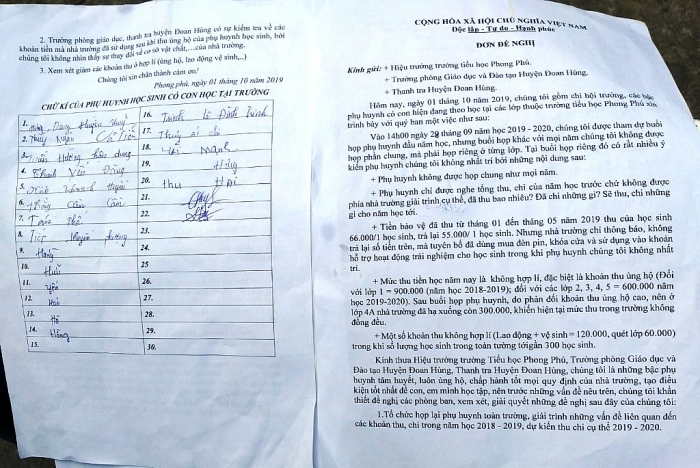 2. Trường phòng giáo dục, thanh tra huyện Đoan Hùng có sự kiểm tra về các
khoản tiền mà nhà trường đã sử dụng sau khi thu ủng hộ của phụ huynh học sinh, bởi
chúng tôi không nhìn thấy sự thay đổi về cơ sở vật chất,…của nhà trường.
3. Xem xét giảm các khoản thu ở hợp lí (ủng hộ, lao động vệ sinh,..)
Chúng tôi xin chân thành cảm ơn!
Phong phú, ngày 01 tháng 10 năm 2019
CHỮ KÍ CỦA PHỤ HUYNH HỌC SINH CÓ CON HỌC TẠI TRƯỜNG
1.
2. Thúy
3. Hương
4.
5.
6.
7.
8. Tiếp
9.
10.
11.
12.
13.
14. Hồng
15.
16.
17. Thúy
18. Mạnh
19.
20. thu
21.
22.
23.
24.
25
26.
27.
28.
29.
30.
CỘNG HÒA XÃ HỘI CHỦ NGHĨA VIỆT NAM
Độc lập - Tự do - Hạnh phúc
ĐƠN ĐỀ NGHỊ
Kính gửi: + Hiệu trưởng trường tiểu học Phong Phú.
+ Trưởng phòng Giáo dục và Đào tạo Huyện Đoan Hùng.
+ Thanh tra Huyện Đoan Hùng.
Hôm nay, ngày 01 tháng 10 năm 2019, chúng tôi gồm chi hội trưởng, các bậc
phụ huynh có con hiện đang theo học tại các lớp thuộc trường tiểu học Phong Phú xin
trình bày với quý ban một việc như sau:
Vào 14h00 ngày 28 tháng 09 năm học 2019 - 2020, chúng tôi được tham dự buổi
họp phụ huynh đầu năm học, nhưng buổi họp khác với mọi năm chúng tôi không được
họp phần chung, mà phải họp riêng ở từng lớp. Tại buổi họp riêng đó có rất nhiều ý
kiến phụ huynh chúng tôi không nhất trí bởi những nội dung sau:
+ Phụ huynh không được họp chung như mọi năm.
+ Phụ huynh chỉ được nghe tổng thu, chi của năm học trước chứ không được
phía nhà trường giải trình cụ thể, đã thu bao nhiêu? Đã chi những gì? Sẽ thu, chi những
gì cho năm học tới.
+ Tiền bảo vệ đã thu từ tháng 01 đến tháng 05 năm 2019 thu của học sinh
66.000/1 học sinh, trả lại 55.000/ 1 học sinh. Nhưng nhà trường chỉ thông báo, không
trả lại số tiền trên, mà tuyên bố đã dùng mua đèn pin, khóa cửa và sử dụng vào khoản
hỗ trợ hoạt động trải nghiệm cho học sinh trong khi phụ huynh chúng tôi không nhất
trí.
+ Mức thu tiền học năm nay là không hợp lí, đặc biệt là khoản thu ủng hộ (Đối
với lớp 1 = 900.000 (năm học 2018-2019); đối với các lớp 2, 3, 4, 5 = 600.000 năm
học 2019-2020). Sau buổi họp phụ huynh, do phản đối khoản thu ủng hộ cao, nên ở
lớp 4A nhà trường đã hạ xuống còn 300.000, khiến hiện tại mức thu trong trường không
đồng đều.
+ Một số khoản thu không hợp lí (Lao động + vệ sinh = 120.000, quét lớp 60.000)
trong khi số lượng học sinh trong toàn trường tới gần 300 học sinh.
Kính thưa Hiệu trưởng trường Tiểu học Phong Phú, Trưởng phòng Giáo dục và
Đào tạo Huyện Đoan Hùng, Thanh tra Huyện Đoan Hùng, chúng tôi là những bậc phụ
huynh tâm huyết, luôn ủng hộ, chấp hành tốt mọi quy định của nhà trường, tạo điều
kiện tốt nhất để con, em mình học tập, nên trước những vấn đề nêu trên, chúng tôi khẩn
thiết đề nghị các phòng ban, xem xét, giải quyết những đề nghị sau đây của chúng tôi:
1.Tổ chức họp lại phụ huynh toàn trường, giải trình những vấn đề liên quan đến
các khoản thu, chi trong năm học 2018 - 2019, dự kiến thu chi cụ thể 2019 - 2020.